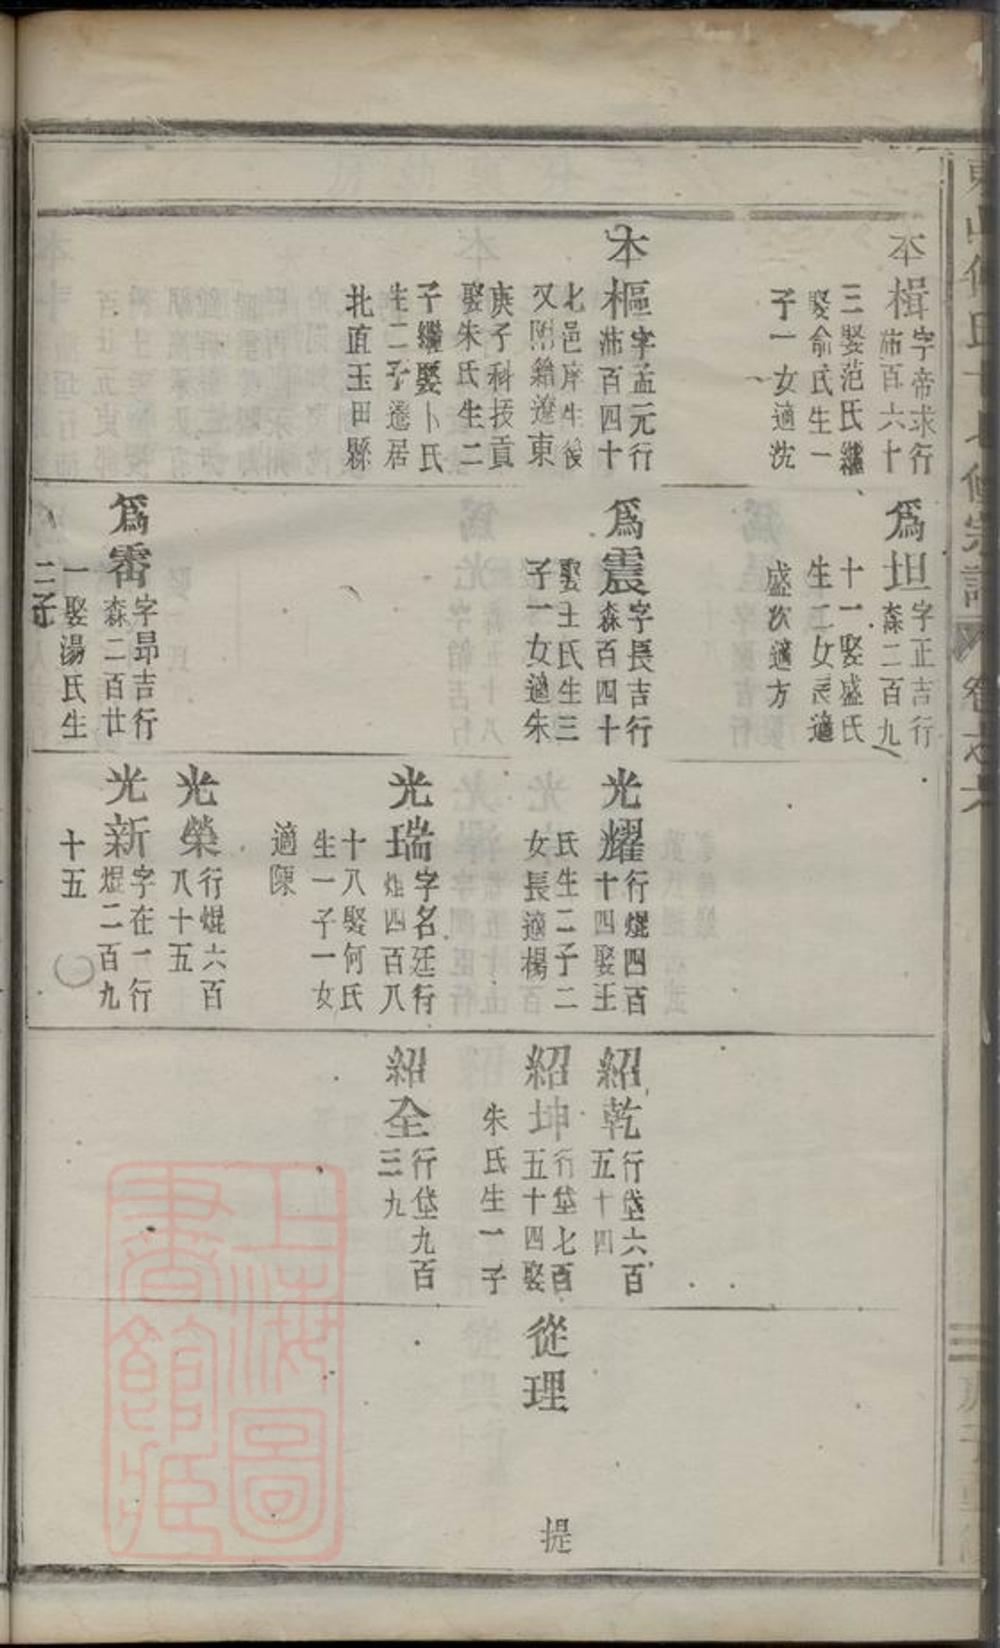 本楫
字帝求行
沛百六十
三娶范氏繼
娶俞氏生一
子一女適沈
本樞
字孟元行
沛百四十
七邑庠生後
又附籍遼東
庚子科拔貢
娶朱氏生二
子繼娶卜氏
生二子遷居
北直玉田縣
爲坦
字正吉行
森二百九
十一娶盛氏
生二女長適
盛次適方
爲震
字長吉行
森百四十
娶王氏生三
子一女適朱
爲
字昴吉行
森二百廿
一娶湯氏生
二子
光耀
行焜四百
十四娶王
氏生二子二
女長適楊
光瑞
字名廷行
焜四百八
十八娶何氏
生一子一女
適陳
光榮
行焜六百
八十五
光新
字在一行
焜二百九
十五
紹乾
行垡六百
五十四
紹坤
行垡七百
五十四娶
朱氏生一子
紹全
行垡九百
三九
從理
提
宗譜
卷之六
上海圖
書館藏